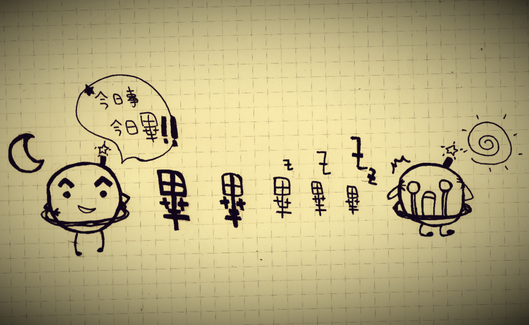 今日事
今日畢!!
畢 畢 畢 畢 畢
z z z z